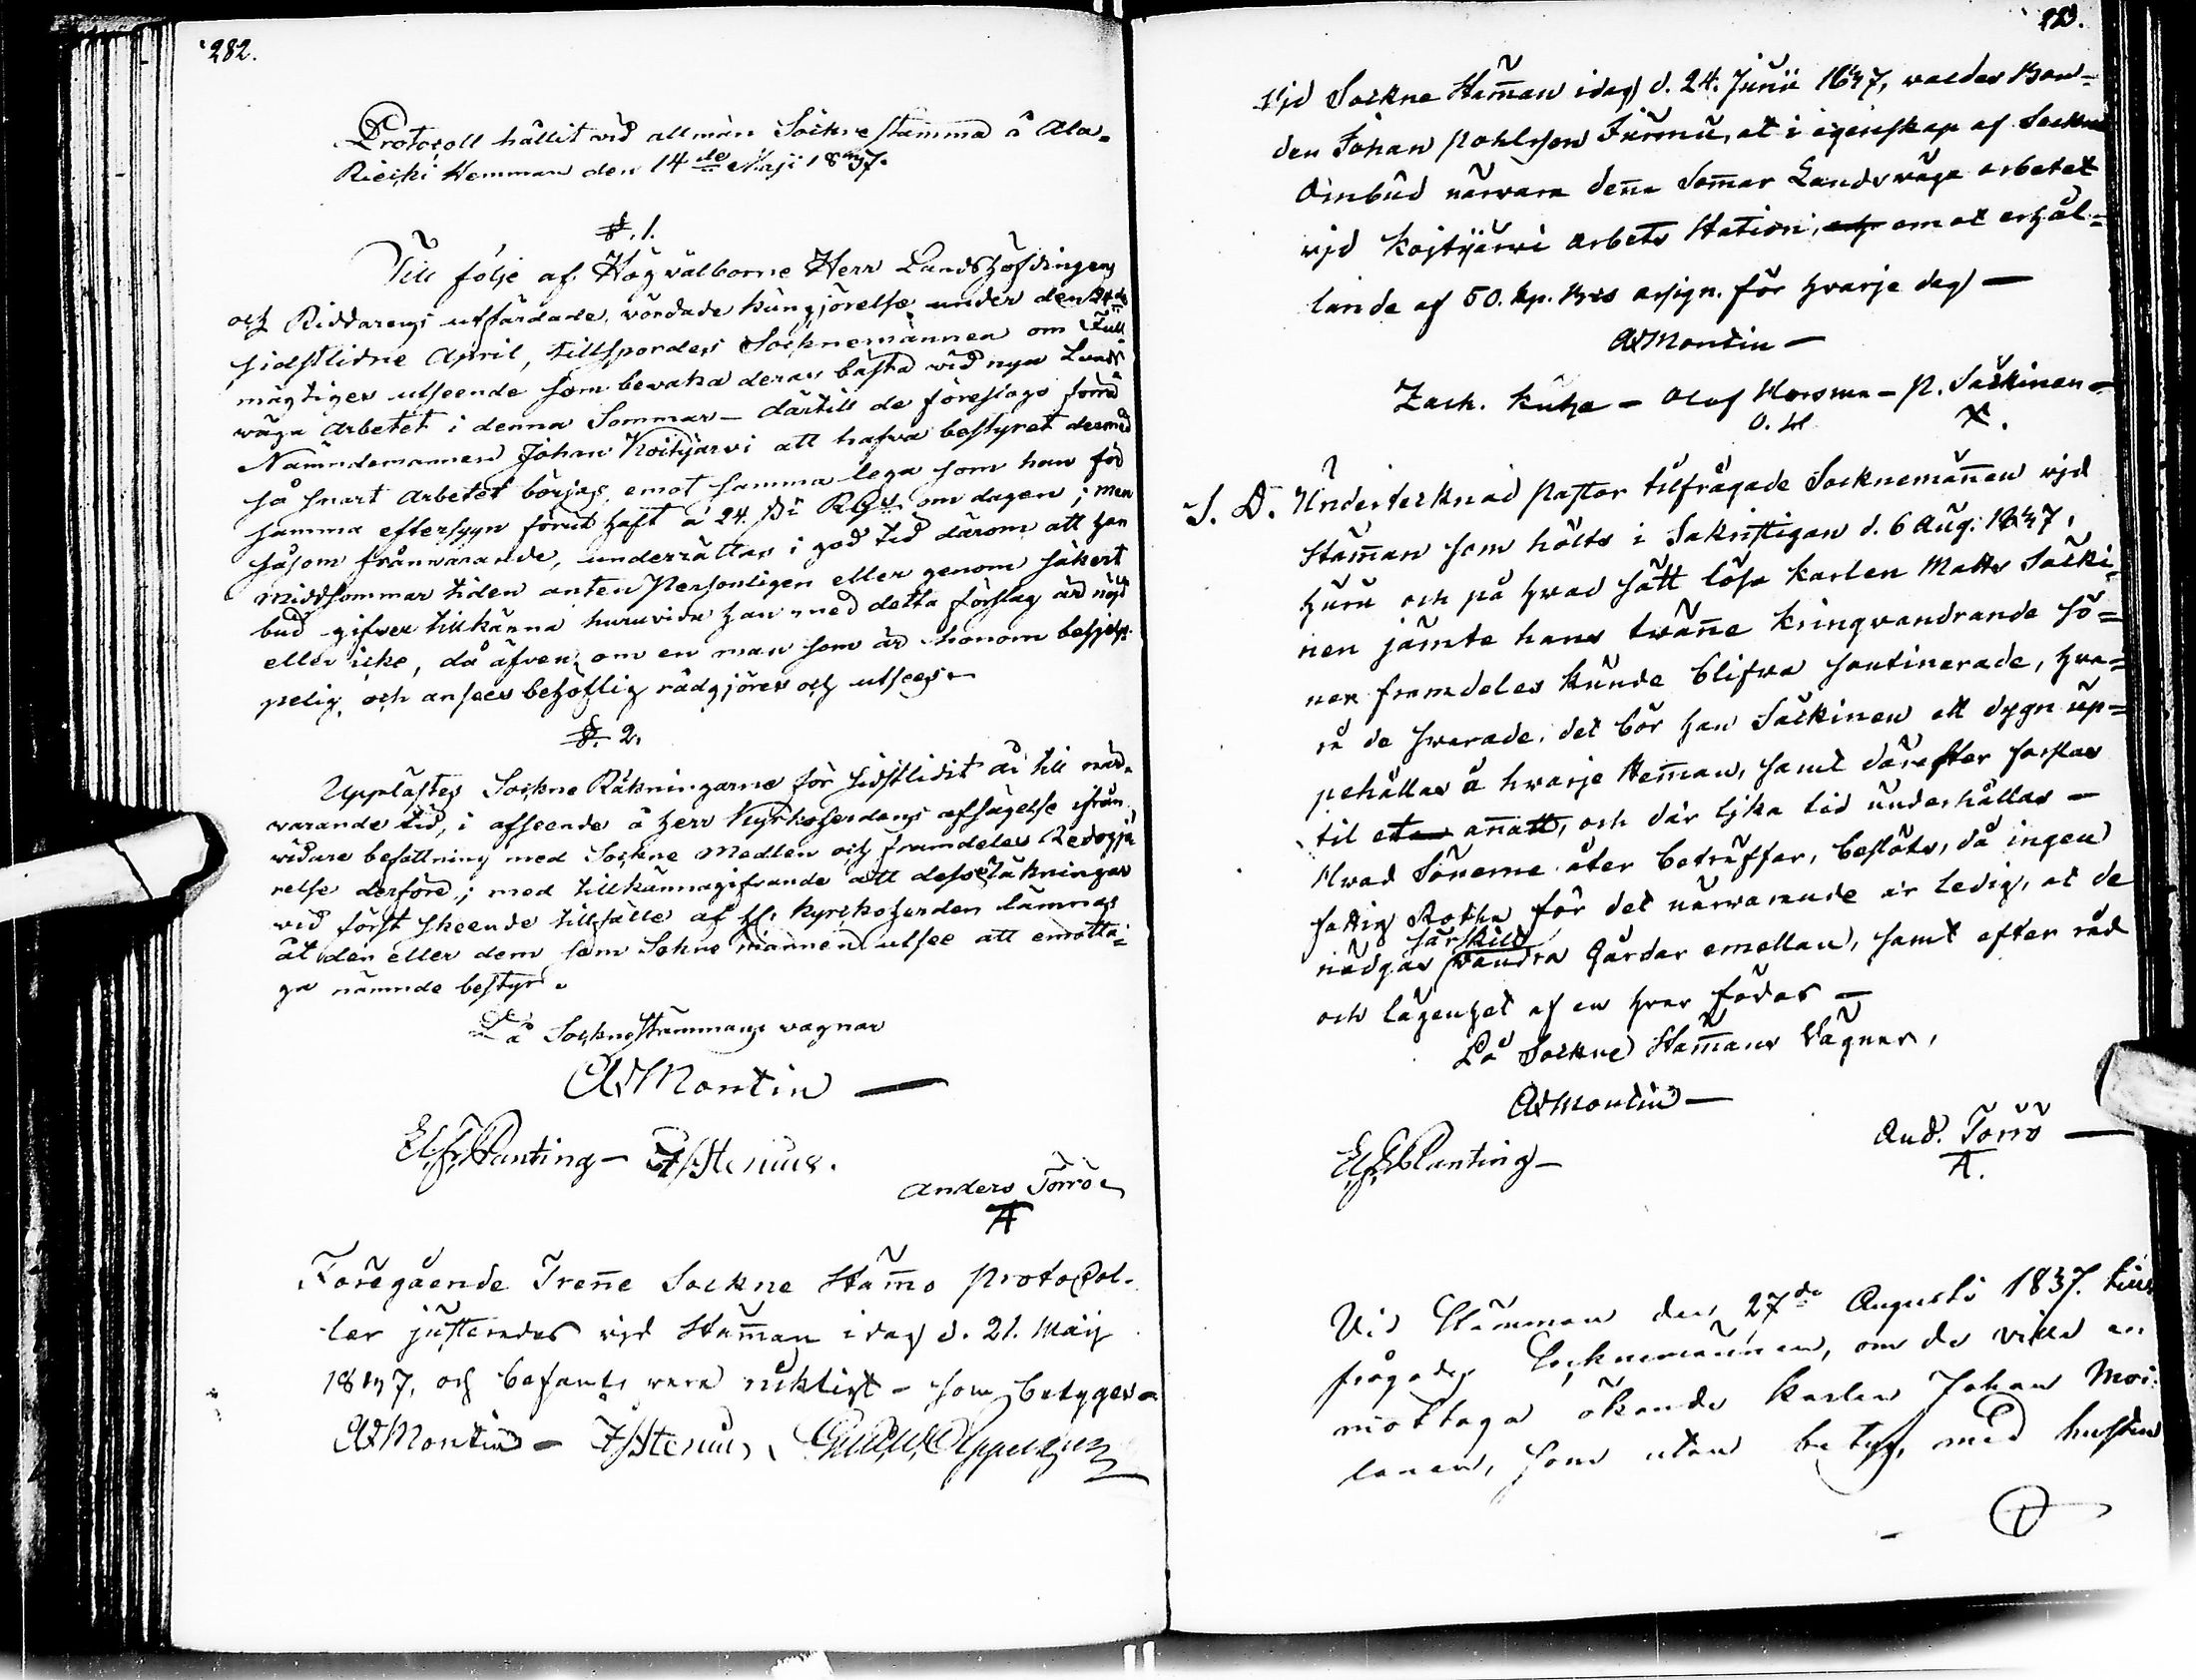 282.
Protocoll hållit vid allmän Sockne stämma å Ala-
Riecki Hemman den 14de Maji 1837.
§. 1.
Till följe af Högvälborne Herr Landshöfdingens
och Riddarens utfärdade, vördade kungjörelse under den 24de
sidstlidne April, tillspordes Socknemännen om Full
mägtiges utseende som bevaka deras bästa vid nya Lands
väga arbetet i denna Sommar – därtill de föreslogo förra
Nämndemannen Johan Koitijärvi att hafva bestyret dermed
så snart arbetet börjas, emot samma lega som han för
samma eftersyn förut haft à 24. om dagen; men
såsom frånvarande, underrättas i god tid därom att han
middsommar tiden anten Personligen eller genom säkert
bud gifver tillkänna huruvida han med detta förslag är nöjd
eller icke, då äfven om en man som är honom behjelp-
pelig och anses behöflig rådgjöres och utses.
§. 2.
Upplästes Sockne Räkningarne för sidstlidit år till när-
varande tid, i afseende å Herr Kyrkoherdens afsägelse ifrån
vidare befattning med Sockne Medlen och framdeles Redogjö
relse derföre; med tillkännagifvande att desse räkningar
vid först skeende tillfälle af H. Kyrkoherden lämnas
åt den eller dem som Sokne männen utsee att emotta-
ga nämnde bestyr.
På Sockne Stämmans vagnar
AdMontin —
Planting – Stenius.
Anders Törrö
A
Föregående Trenne Sockne Stämmo Protocol-
ler justerades wid Stämman idag d. 21. Maij
1837, och befants vara riktigt – som betygas
AdMontin – Stenius,
Wid Sockne Stämman idag d. 24. Junii 1837, valdes Bon-
den Johan Pohlsson Jurmu, at i egenskap af Sockne
Ombud närvara denna Sommar Landsväga arbetet
wid Kojtijärwi arbets Station, emot erhål-
lande af 50. kp. B:co assign. för hvarje dag —
AdMontin —
Zach. Kutza – Olof Horsma – P. Säkkinen –
S. D. Undertecknad Pastor tilfrågade Socknemännen wid
Stämman som hölts i Sakristigan d. 6 Aug. 1837,
huru och på hvad sätt löse Karlen Matts Säcki-
nen jämte hans twänne kringvandrande sö-
ner framdeles kunde blifva soutinerade, hva-
på de svarade, det bör han Säckinen ett dygn up-
pehållas å hvarje Hemman, samt därefter forslas
til annatt, och där lika tid underhållas —
Hvad Sönerne åter beträffar, beslöts, då ingen
fattig Rotha för det närvarande är ledig, at de
särskildt
nödgas wandra Gårdar emellan, samt efter råd
och lägenhet af en hvar födas —
På Sockne Stämmans Vägnar,
AdMontin —
Planting —
And. Törrö —
A.
Vid Stämman den 27de Augusti 1837. till
frågades Socknemännen, om de ville en
mottaga okände karlen Johan Moi-
lanen, som utan betyg, med hustru